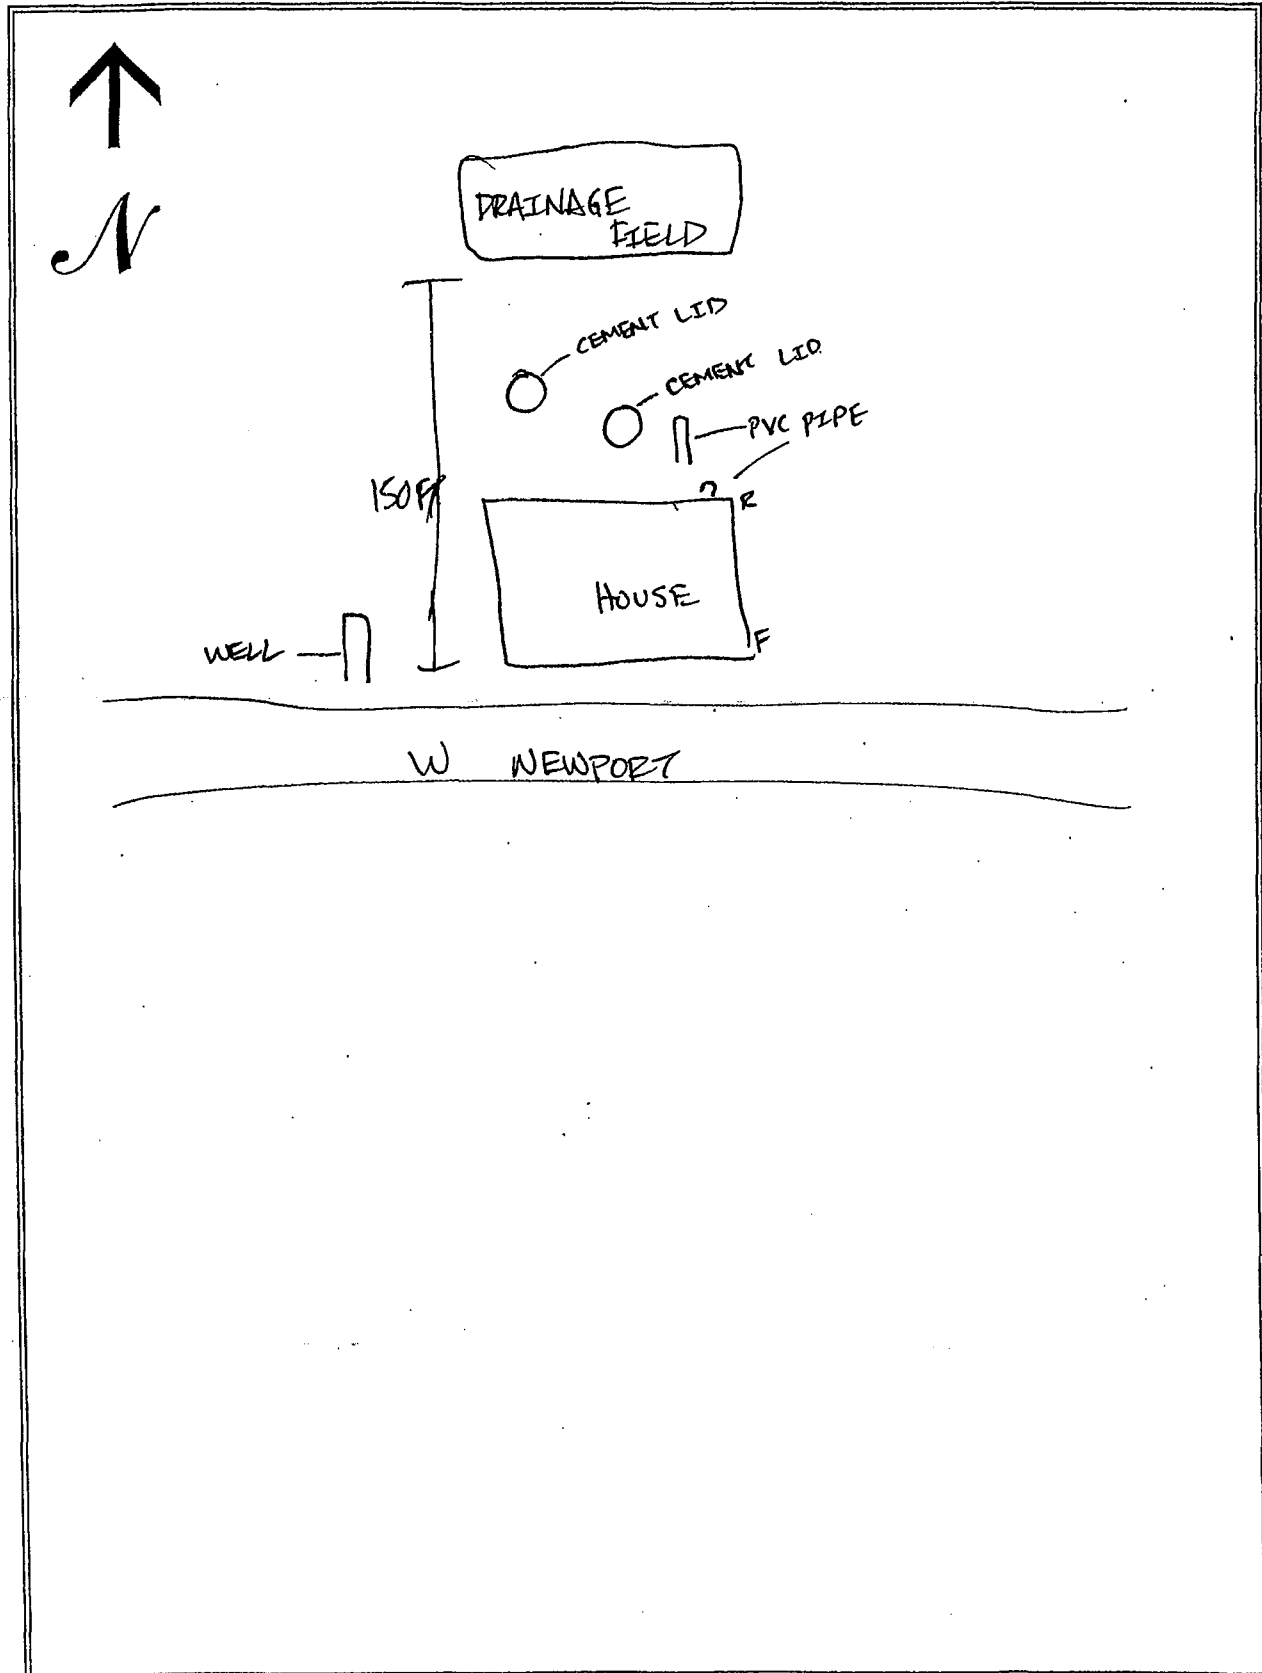 N
DRAINAGE
FIELD
CEMENT LID
CEMENT LID
PVC PIPE
150FT
R
HOUSE
F
WELL
W NEWPORT